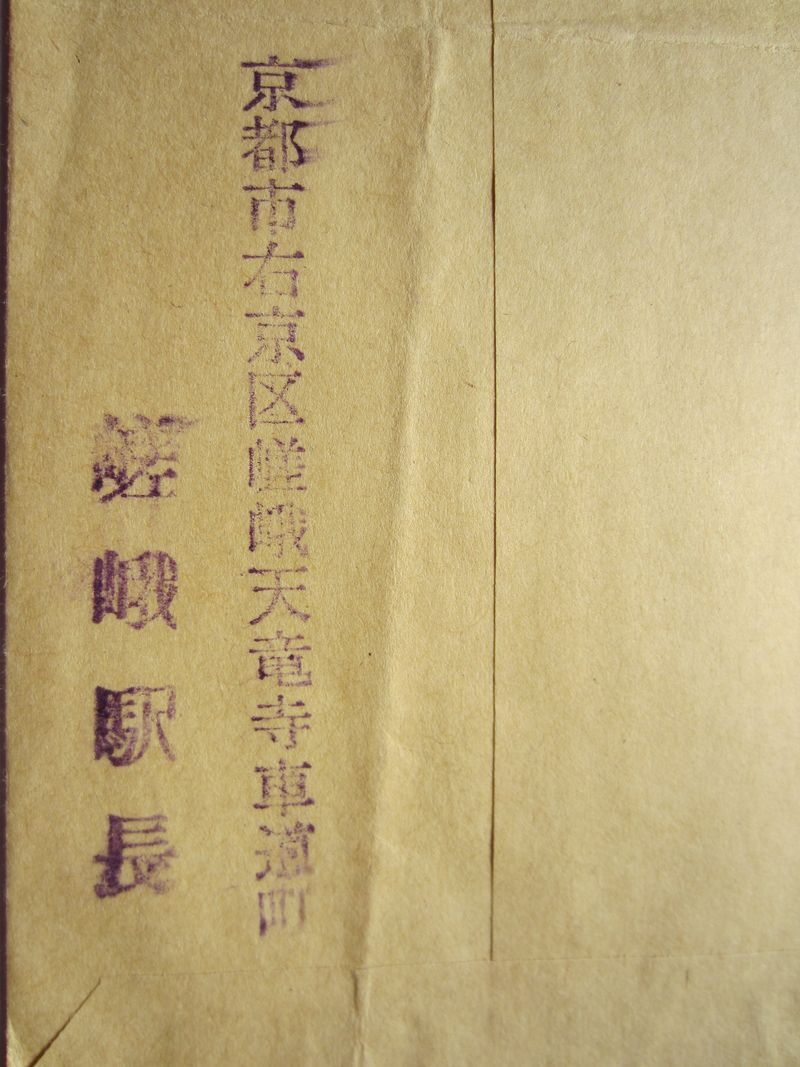 京都市右京区嵯峨天竜寺車道町
嵯峨駅長